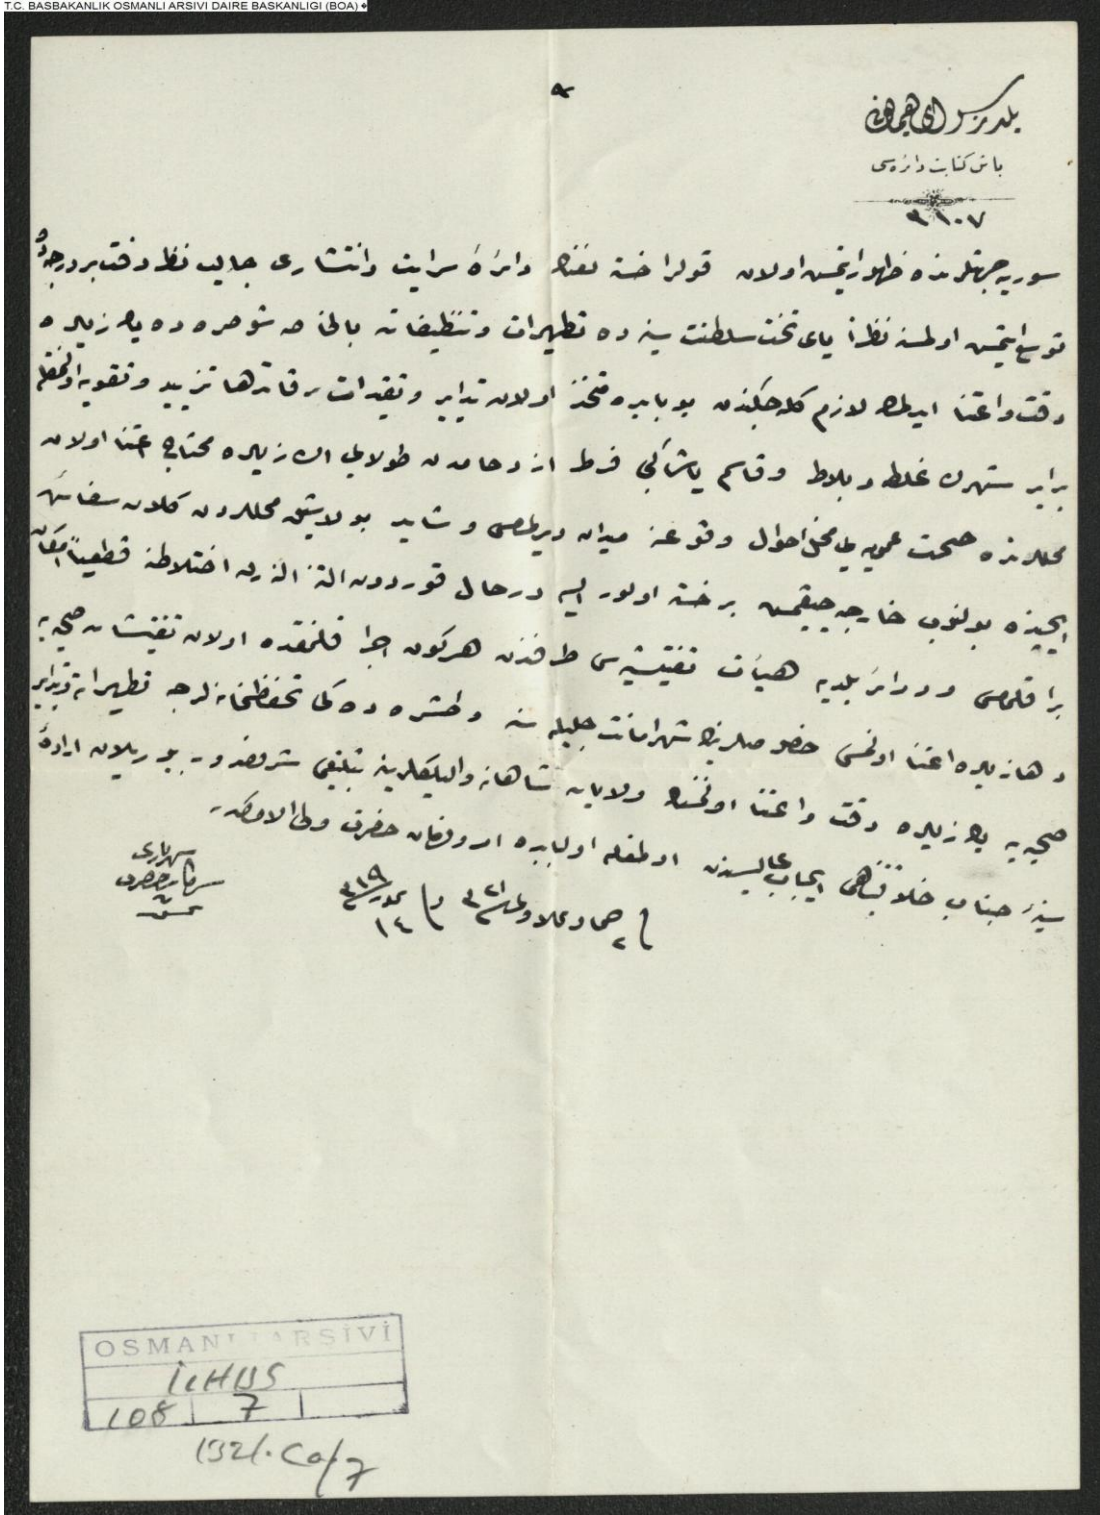 T.C. BASBAKANLIK OSMANLI ARSIVI DAIRE BASKANLIGI (BOA)
يلديز سراى همايونى
باش كتابت دائره‌سى
٣١٠٧
سوريه جهتلرنده ظهور ايتمش اولان قولرا خسته‌لغنك دائرهٔ سرايت و انتشارى جالب نظر دقت بر درجه‌ده
توسع ايتمش اولمسنه نظراً پاى تخت سلطنت سنيه‌ده تطهيرات و تنظيفاته بالخاصه شو صره‌ده پك زياده
دقت و اعتنا ايدلمك لازم كله‌جكندن بو بابده متخذ اولان تدابير و تقيدات بر قات دها تزييد و تقويه اولنمقله
برابر شهرك غلطه و بلاط و قاسم پاشا كبى فرط ازدحامدن طولايى اك زياده محتاج اعتنا اولان
محللرنده صحت عموميه‌يى مخل احوال وقوعنه ميدان ويرلمامسى و شايد بولاشيق محللردن كلان سفائن
ايچنده بولنوب خارجه چيقمش بر خسته اولور ايسه درحال قوردون آلتنه آلنه‌رق اختلاطنه قطعياً امكان
براقلمامسى و دوائر بلديه هيأت تفتيشيه‌سى طرفندن هركون اجرا قلنمقده اولان تفتيشات صحيه‌يه
دها زياده اعتنا اولنمسى خصوصلرينك شهر امانت جليله‌سنه و طشره‌ده‌كى تحفظخانه‌لرجه تطهيراته و تدابير
صحيه‌يه پك زياده دقت و اعتنا اولنمسنك ولايات شاهانه واليلكلرينه تبليغى شرفصدور بيوريلان ارادهٔ
سنيهٔ جناب خلافتپناهى ايجاب عاليسندن اولمغله اولبابده امر و فرمان حضرت ولى الامركدر
فى ٧ جمادى الاولى سنه ٣٢١ و فى ١٩ تموز سنه ٣١٩
سركاتب حضرت شهريارى
تحسين
OSMANLI ARŞİVİ
İ.HUS
108 7
1321.Ca/7